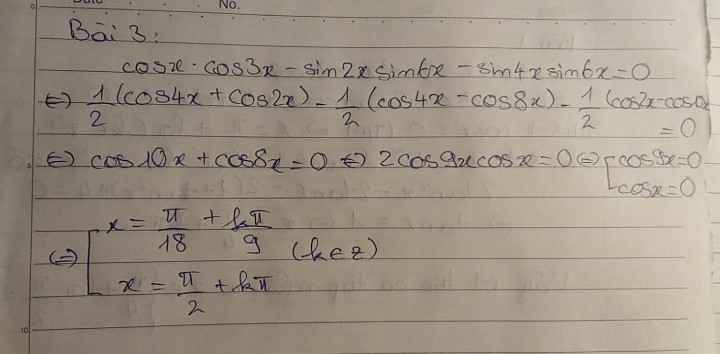 No.
Bài 3:
cosx · cos3x - sin2x sin6x - sin4x sin6x = 0
⇔ 1/2 (cos4x + cos2x) - 1/2 (cos4x - cos8x) - 1/2 (cos2x - cos10x = 0
⇔ cos10x + cos8x = 0 ⇔ 2cos9x cosx = 0 ⇔ [ cos9x = 0
cosx = 0
⇔ [ x = π/18 + kπ/9 (k∈Z)
x = π/2 + kπ
10